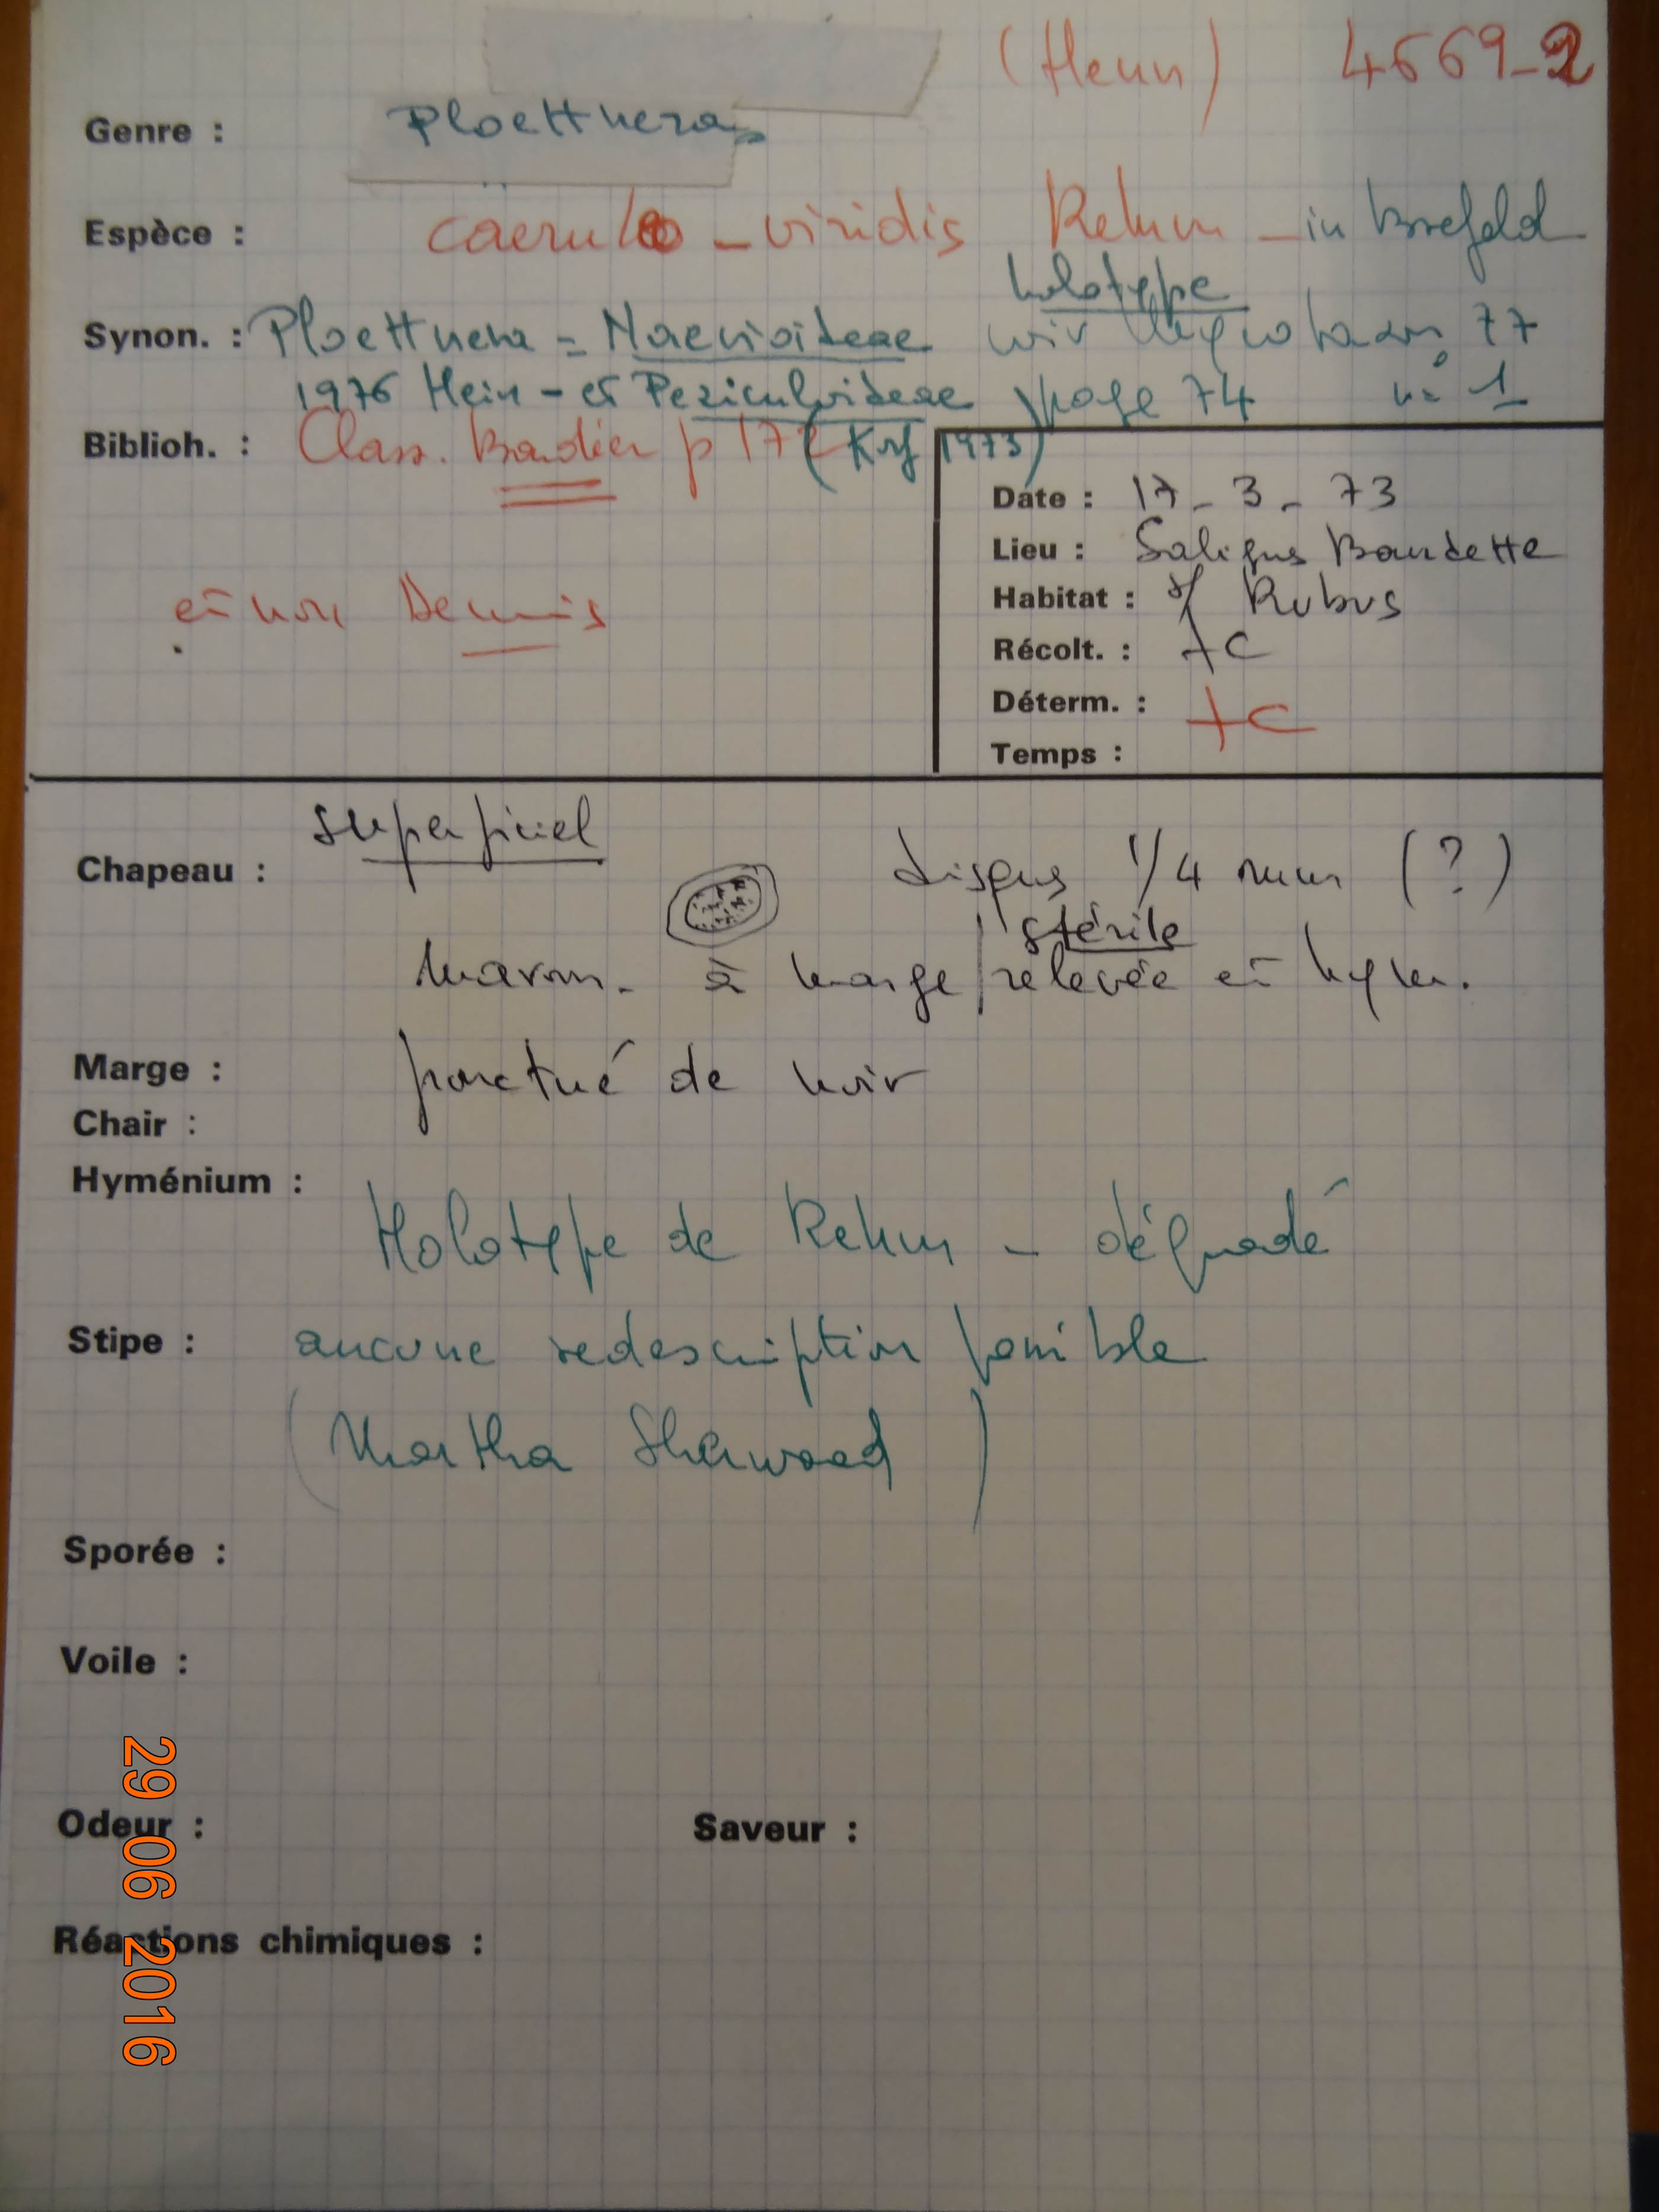 (Henn) 4669-2
Genre : Ploettnera
Espèce : caeruleo - viridis Rehm - in Brefeld
holotype
Synon. : Ploettnera = Naevioideae voir Mycotaxon 77
1976 Hein - et Peziculoideae page 74 n° 1
Biblioh. : Class. Boudier p 17 (Korf 1973)
et non Dennis
Date : 17 - 3 - 73
Lieu : Saligus Baudette
Habitat : s/ Rubus
Récolt. : +C
Déterm. : +C
Temps :
superficiel
Chapeau : disque 1/4 mm (?)
stérile
marron. à marge relevée et hym.
Marge : ponctué de noir
Chair :
Hyménium :
Holotype de Rehm - dégradé
Stipe : aucune redescription possible
(Martha Sherwood)
Sporée :
Voile :
Odeur : Saveur :
Réactions chimiques :
29 06 2016